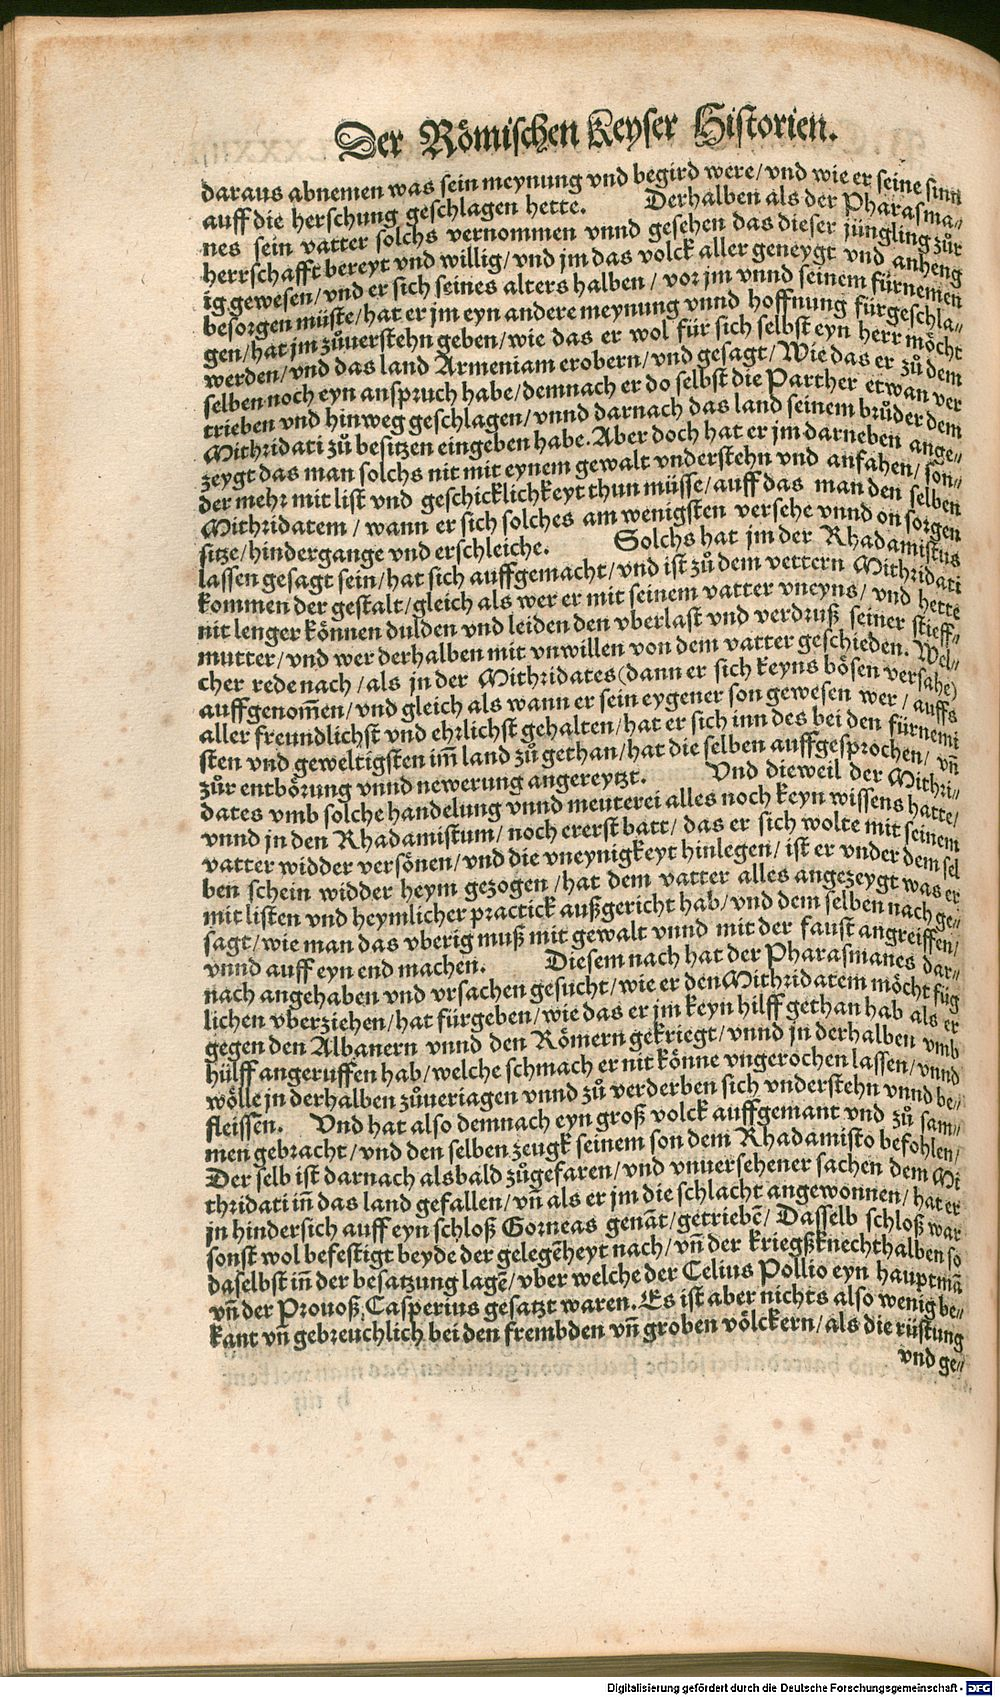 Der Römischen Keyser Historien.
daraus abnemen was sein meynung vnd begird were/ vnd wie er seine sinn
auff die herschung geschlagen hette. Derhalben als der Pharasma⸗
nes sein vatter solchs vernommen vnnd gesehen das dieser jüngling zůr
herrschafft bereyt vnd willig/ vnd jm das volck aller geneygt vnd anheng
ig gewesen/ vnd er sich seines alters halben/ vor jm vnnd seinem fürnemen
besorgen müste/ hat er jm eyn andere meynung vnnd hoffnung fürgeschla⸗
gen/ hat jm zůuerstehn geben/ wie das er wol für sich selbst eyn herr möcht
werden/ vnd das land Armeniam erobern/ vnd gesagt/ Wie das er zů dem
selben noch eyn anspruch habe/ demnach er do selbst die Parther etwan ver
trieben vnd hinweg geschlagen/ vnnd darnach das land seinem brůder dem
Mithridati zů besitzen eingeben habe. Aber doch hat er jm darneben ange⸗
zeygt das man solchs nit mit eynem gewalt vnderstehn vnd anfahen/ son⸗
der mehr mit list vnd geschicklichkeyt thun müsse/ auff das man den selben
Mithridatem/ wann er sich solches am wenigsten versehe vnnd on sorgen
sitze/ hindergange vnd erschleiche. Solchs hat jm der Rhadamistus
lassen gesagt sein/ hat sich auffgemacht/ vnd ist zů dem vettern Mithridati
kommen der gestalt/ gleich als wer er mit seinem vatter vneyns/ vnd hette
nit lenger können dulden vnd leiden den vberlast vnd verdruß seiner stieff⸗
mutter/ vnd wer derhalben mit vnwillen von dem vatter geschieden. Wel⸗
cher rede nach/ als jn der Mithridates (dann er sich keyns bösen versahe)
auffgenom̃en/ vnd gleich als wann er sein eygener son gewesen wer/ auffs
aller freundlichst vnd ehrlichst gehalten/ hat er sich inn des bei den fürnemi
sten vnd geweltigsten im̃ land zů gethan/ hat die selben auffgesprochen/ vñ
zůr entbörung vnnd newerung angereytzt. Vnd dieweil der Mithri⸗
dates vmb solche handelung vnnd meuterei alles noch keyn wissens hatte/
vnnd jn den Rhadamistum/ noch ererst batt/ das er sich wolte mit seinem
vatter widder versönen/ vnd die vneynigkeyt hinlegen/ ist er vnder dem sel
ben schein widder heym gezogen/ hat dem vatter alles angezeygt was er
mit listen vnd heymlicher practick außgericht hab/ vnd dem selben nach ge⸗
sagt/ wie man das vberig muß mit gewalt vnnd mit der faust angreiffen/
vnnd auff eyn end machen. Diesem nach hat der Pharasmanes dar⸗
nach angehaben vnd vrsachen gesucht/ wie er den Mithridatem möcht füg
lichen vberziehen/ hat fürgeben/ wie das er jm keyn hilff gethan hab als er
gegen den Albanern vnnd den Römern gekriegt/ vnnd jn derhalben vmb
hülff angeruffen hab/ welche schmach er nit könne vngerochen lassen/ vnnd
wölle jn derhalben zůueriagen vnnd zů verderben sich vnderstehn vnnd be⸗
fleissen. Vnd hat also demnach eyn groß volck auffgemant vnd zů sam⸗
men gebracht/ vnd den selben zeugk seinem son dem Rhadamisto befohlen/
Der selb ist darnach alsbald zůgefaren/ vnd vnuersehener sachen dem Mi
thridati iñ das land gefallen/ vñ als er jm die schlacht angewonnen/ hat er
jn hindersich auff eyn schloß Gorneas genãt/ getriebẽ/ Dasselb schloß war
sonst wol befestigt beyde der gelegẽheyt nach/ vñ der kriegßknecht halben so
daselbst iñ der besatzung lagẽ/ vber welche der Celius Pollio eyn hauptmã
vñ der Prouoß, Casperius gesatzt waren. Es ist aber nichts also wenig be⸗
kant vñ gebreuchlich bei den frembden vñ groben völckern/ als die rüstung
vnd ge⸗
Digitalisierung gefördert durch die Deutsche Forschungsgemeinschaft - DFG